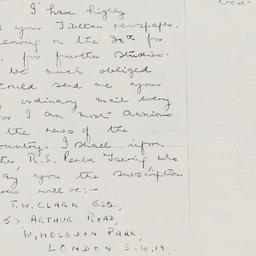 I have highly
your Tibetan newspaper.
leaving on the 30th for
for further studies.
be much obliged
could send me your
ordinary mail every
for I am most anxious
the news of the
country. I shall inform
R.S. Penba Tsering, who
pay you the subscription.
will be:-
T.W. CLARK ESQ.,
53 ARTHUR ROAD,
WIMBLEDON PARK,
LONDON S.W.19.